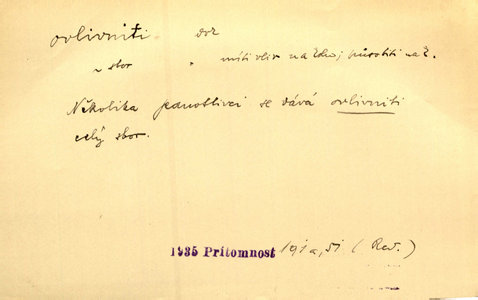 ovlivniti dok
~ sbor míti vliv na něj, působiti na č.
Několika jednotlivci se dává ovlivniti
celý sbor.
1935 Prítomnost 191a, 51 (Red.)